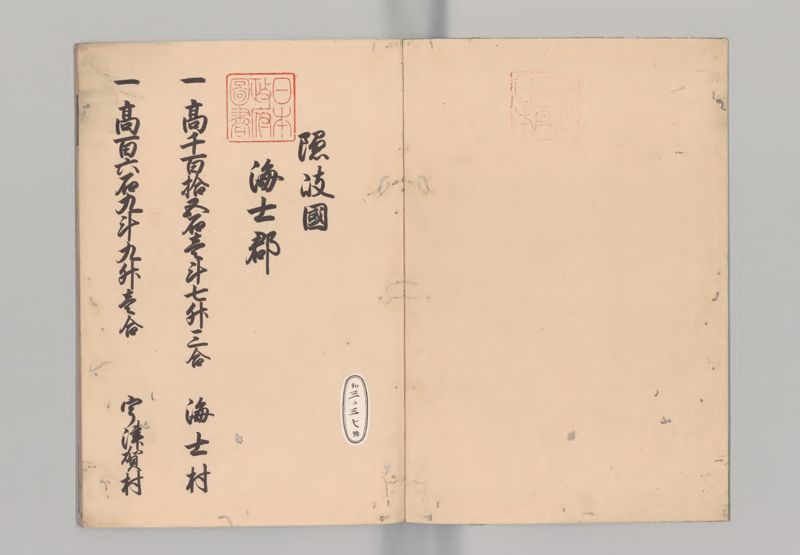 隠岐國
海士郡
日本政府圖書
一 高千百拾五石壱斗七升三合 海士村
一 高百六石九斗九升壱合 宇津賀村
和三〇三七號